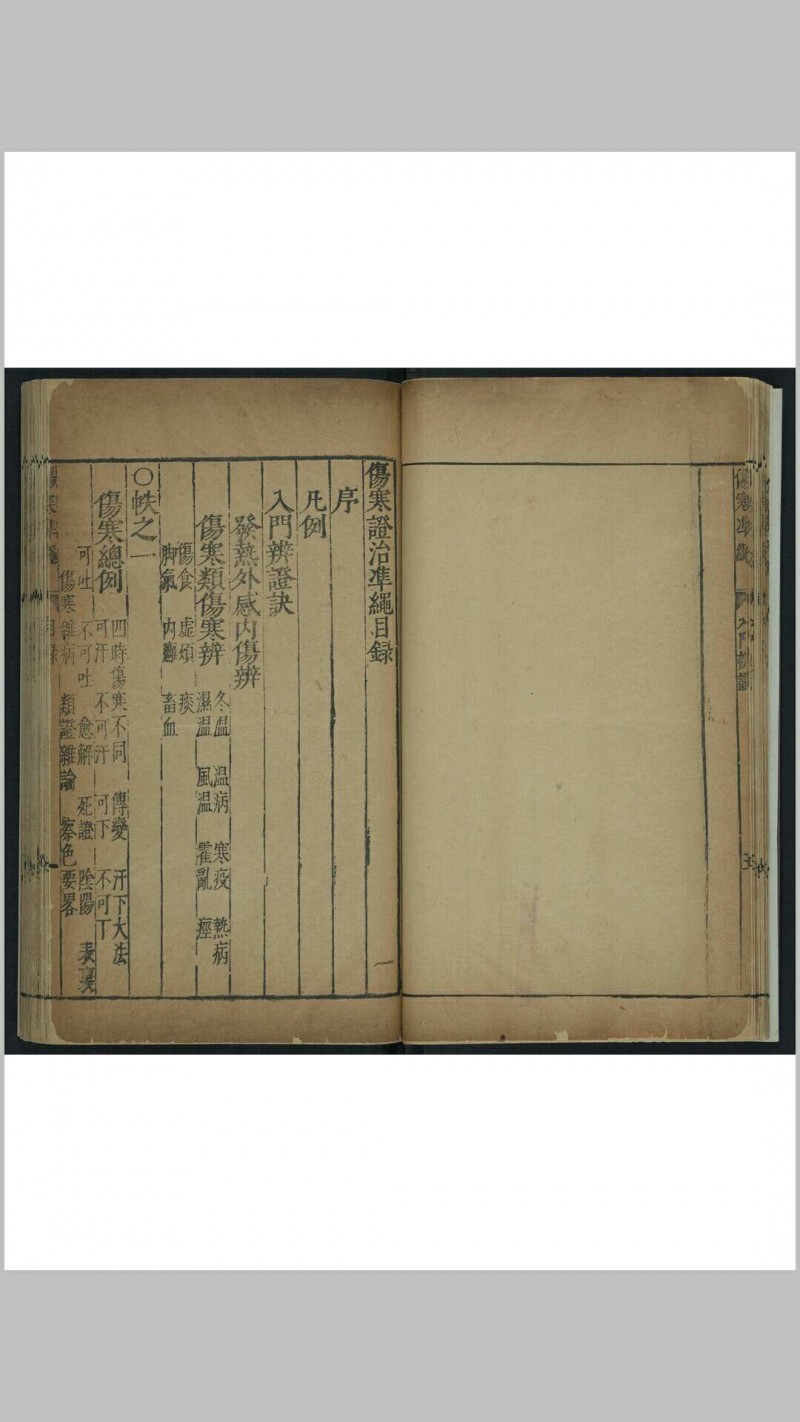 傷寒準繩 入門辨證
傷寒證治準繩目録
序
凡例
入門辨證訣
發熱外感内傷辨
傷寒類傷寒辨 冬温 温病 寒疫 熱病
濕温 風温 霍亂 痙
傷食 虛煩 痰
脚氣 内癰 畜血
○帙之一
傷寒總例 四時傷寒不同 傳變 汗下大法
可汗 不可汗 可下 不可下
可吐 不可吐 愈解 死證 陰陽 表裏
傷寒雜病 類證雜論 察色要畧
目録
一